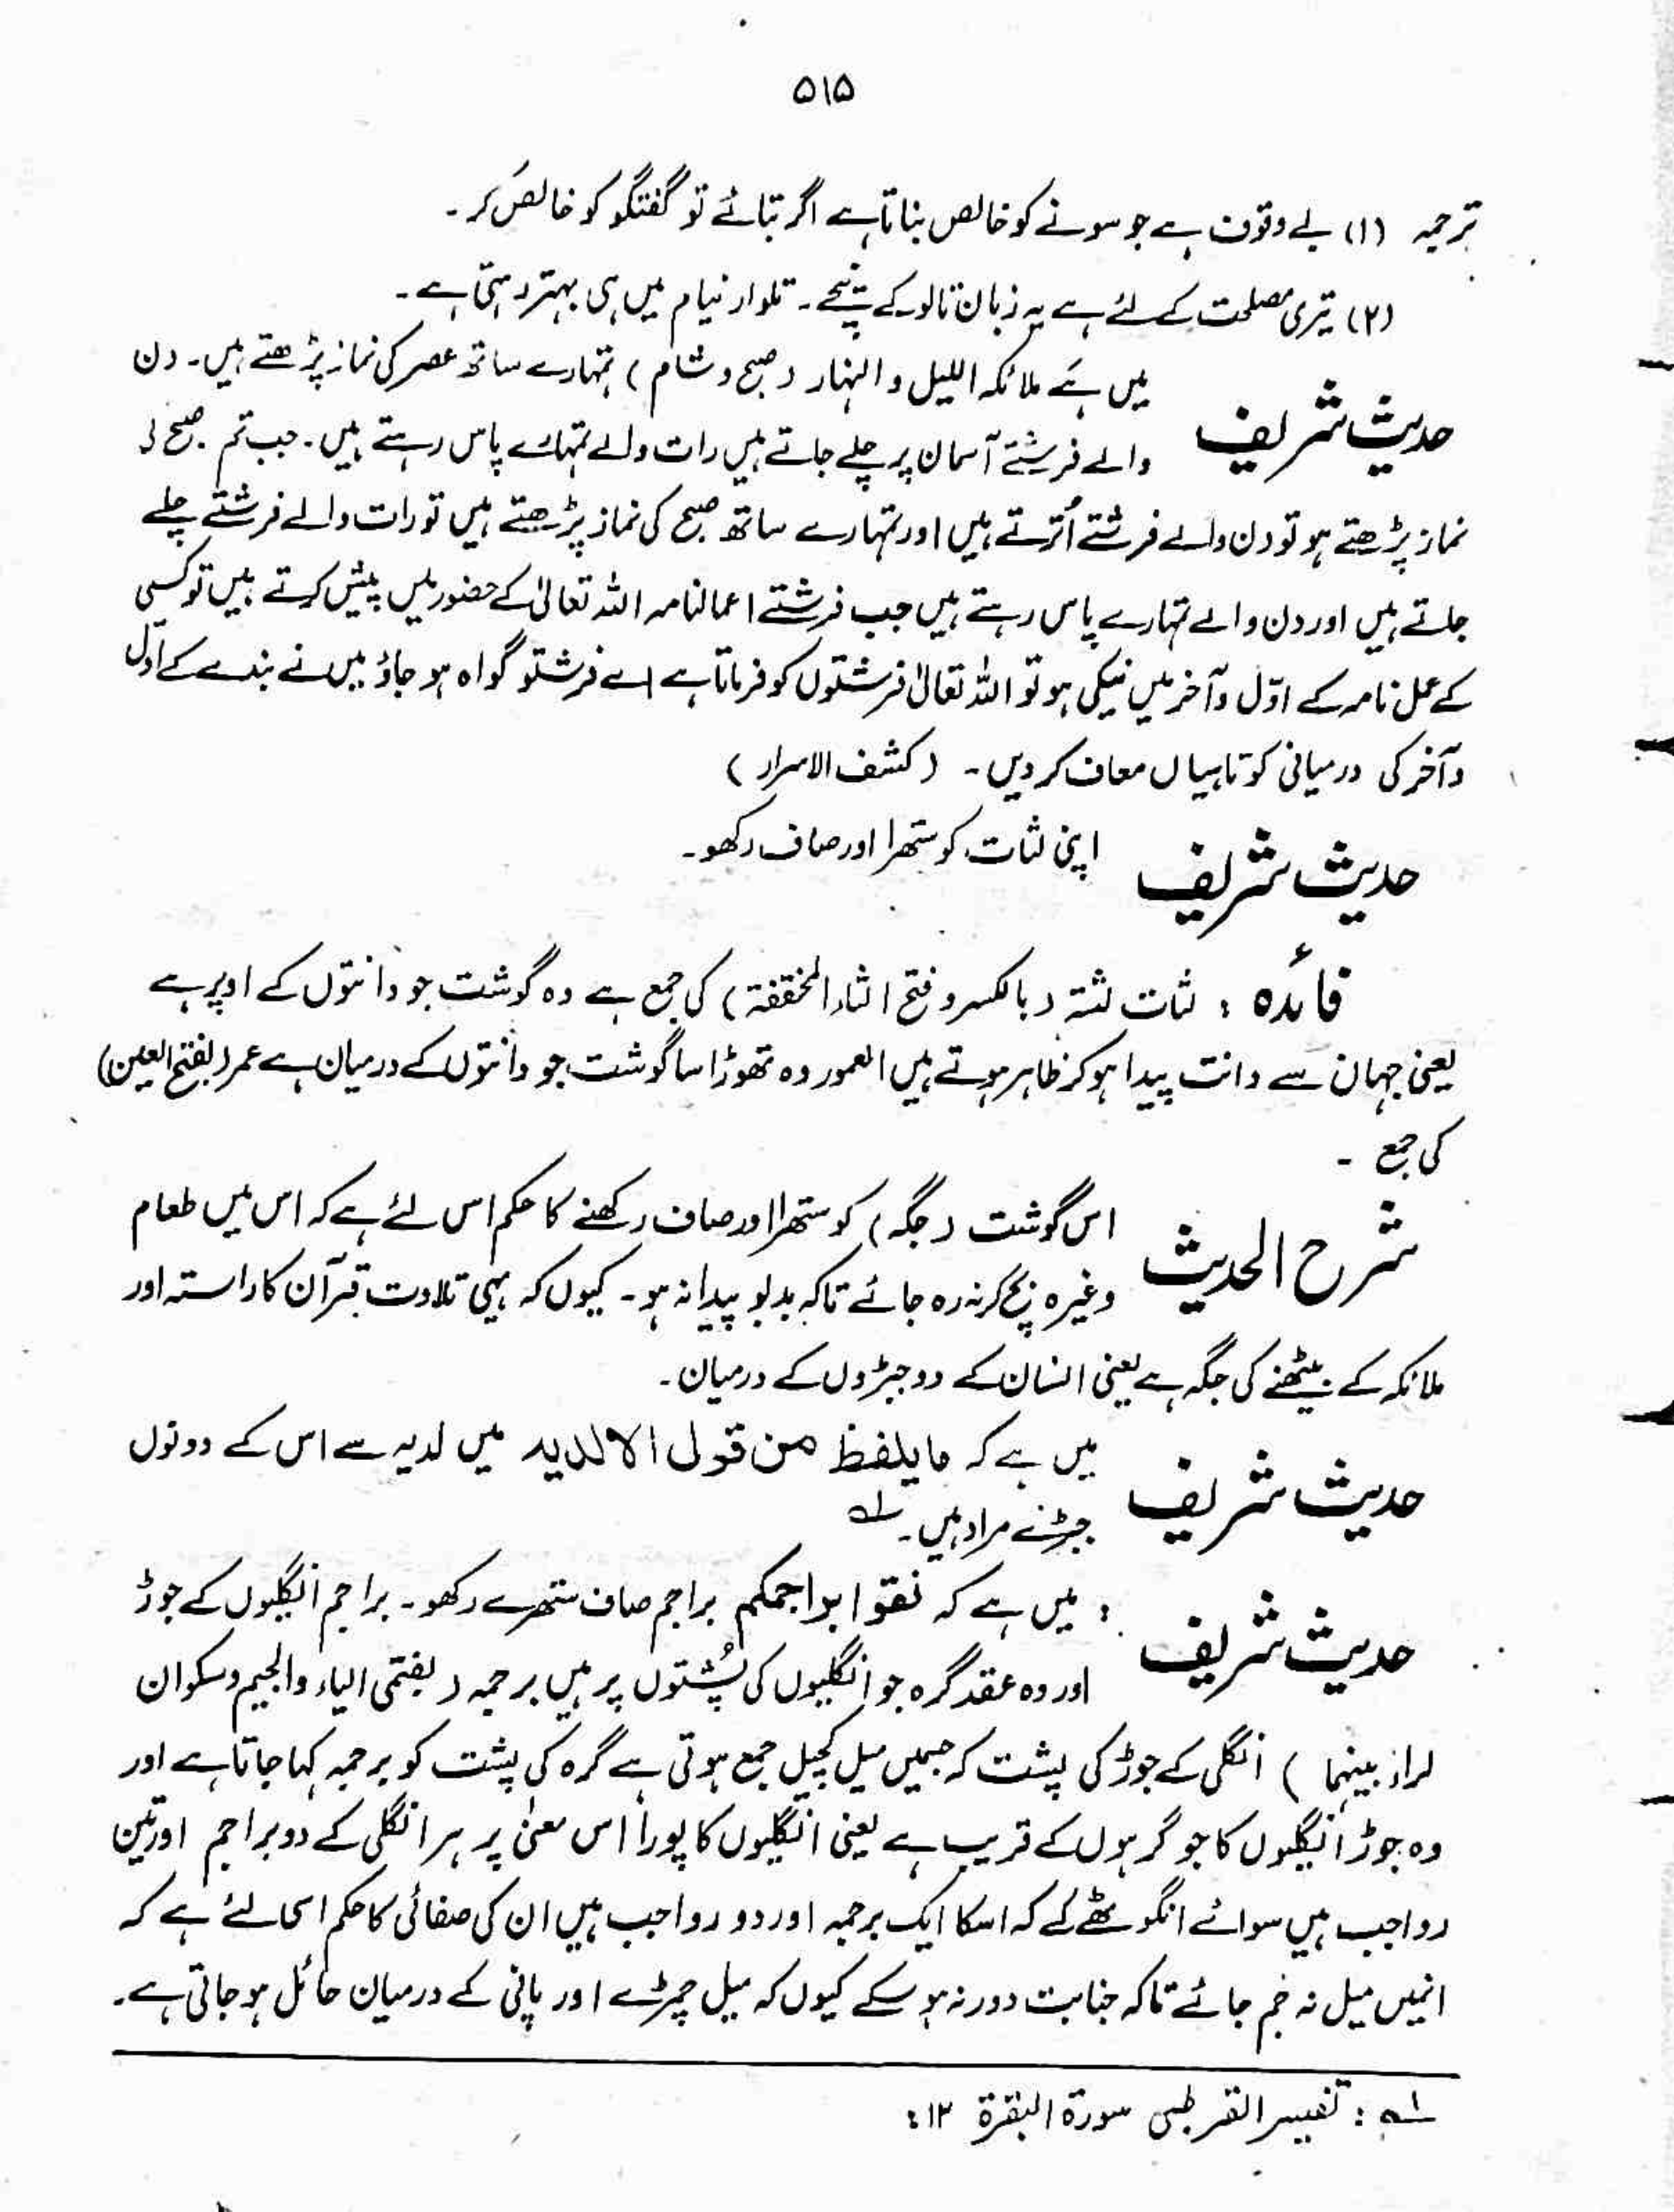 ۵۱۵
ترجمہ (۱) بے وقوف ہے جو سونے کو خالص بناتا ہے اگر بتائے تو گفتگو کو خالص کر ۔
(۲) تیری مصلحت کے لئے ہے یہ زبان تالو کے نیچے ۔ تلوار نیام میں ہی بہتر رہتی ہے ۔
حدیث شریف میں ہے ملائکہ اللیل و النہار (صبح و شام) تمہارے ساتھ عصر کی نماز پڑھتے ہیں ۔ دن
والے فرشتے آسمان پر چلے جاتے ہیں رات والے تمہارے پاس رہتے ہیں ۔ جب تم صبح کی
نماز پڑھتے ہو تو دن والے فرشتے اُترتے ہیں اور تمہارے ساتھ صبح کی نماز پڑھتے ہیں تو رات والے فرشتے چلے
جاتے ہیں اور دن والے تمہارے پاس رہتے ہیں جب فرشتے اعمالنامہ اللہ تعالیٰ کے حضور میں پیش کرتے ہیں تو کسی
کے عمل نامہ کے اوّل و آخر میں نیکی ہو تو اللہ تعالیٰ فرشتوں کو فرماتا ہے اے فرشتو گواہ ہو جاؤ میں نے بندے کے اول
و آخر کی درمیانی کوتاہیاں معاف کر دیں ۔ (کشف الاسرار)
حدیث شریف اپنی لثات کو ستھرا اور صاف رکھو ۔
فائدہ : لثات لثۃ (بالکسر و فتح الثاء المخففۃ) کی جمع ہے وہ گوشت جو دانتوں کے اوپر ہے
یعنی جہان سے دانت پیدا ہو کر ظاہر ہوتے ہیں العمور وہ تھوڑا سا گوشت جو دانتوں کے درمیان ہے عمر (بفتح العین)
کی جمع ۔
شرح الحدیث اس گوشت (جگہ) کو ستھرا اور صاف رکھنے کا حکم اس لئے ہے کہ اس میں طعام
وغیرہ بچ کر نہ رہ جائے تاکہ بدبو پیدا نہ ہو ۔ کیوں کہ یہی تلاوت قرآن کا راستہ اور
ملائکہ کے بیٹھنے کی جگہ ہے یعنی انسان کے دو جبڑوں کے درمیان ۔
حدیث شریف میں ہے کہ ما یلفظ من قول الا لدیہ میں لدیہ سے اس کے دونوں
جبڑے مراد ہیں ۔ ؂۱
حدیث شریف : میں ہے کہ نقوا براجمکم براجم صاف ستھرے رکھو ۔ براجم انگلیوں کے جوڑ
اور وہ عقد گرہ جو انگلیوں کی پُشتوں پر ہیں برجمہ (بفتمی الیاء والجیم وسکوان
لراز بینہما) انگلی کے جوڑ کی پشت کہ جسمیں میل کچیل جمع ہوتی ہے گرہ کی پشت کو برجمہ کہا جاتا ہے اور
وہ جوڑ انگلیوں کا جو گرہوں کے قریب ہے یعنی انگلیوں کا پورا اس معنیٰ پر ہر انگلی کے دو براجم اور تین
رواجب ہیں سوائے انگوٹھے کے کہ اسکا ایک برجمہ اور دو رواجب ہیں ان کی صفائی کا حکم اسی لئے ہے کہ
انمیں میل نہ جم جائے تاکہ جنابت دور نہ ہو سکے کیوں کہ میل چمڑے اور پانی کے درمیان حائل ہو جاتی ہے ۔
؂۱ : تفسیر القرطبی سورۃ البقرۃ ۱۲ :